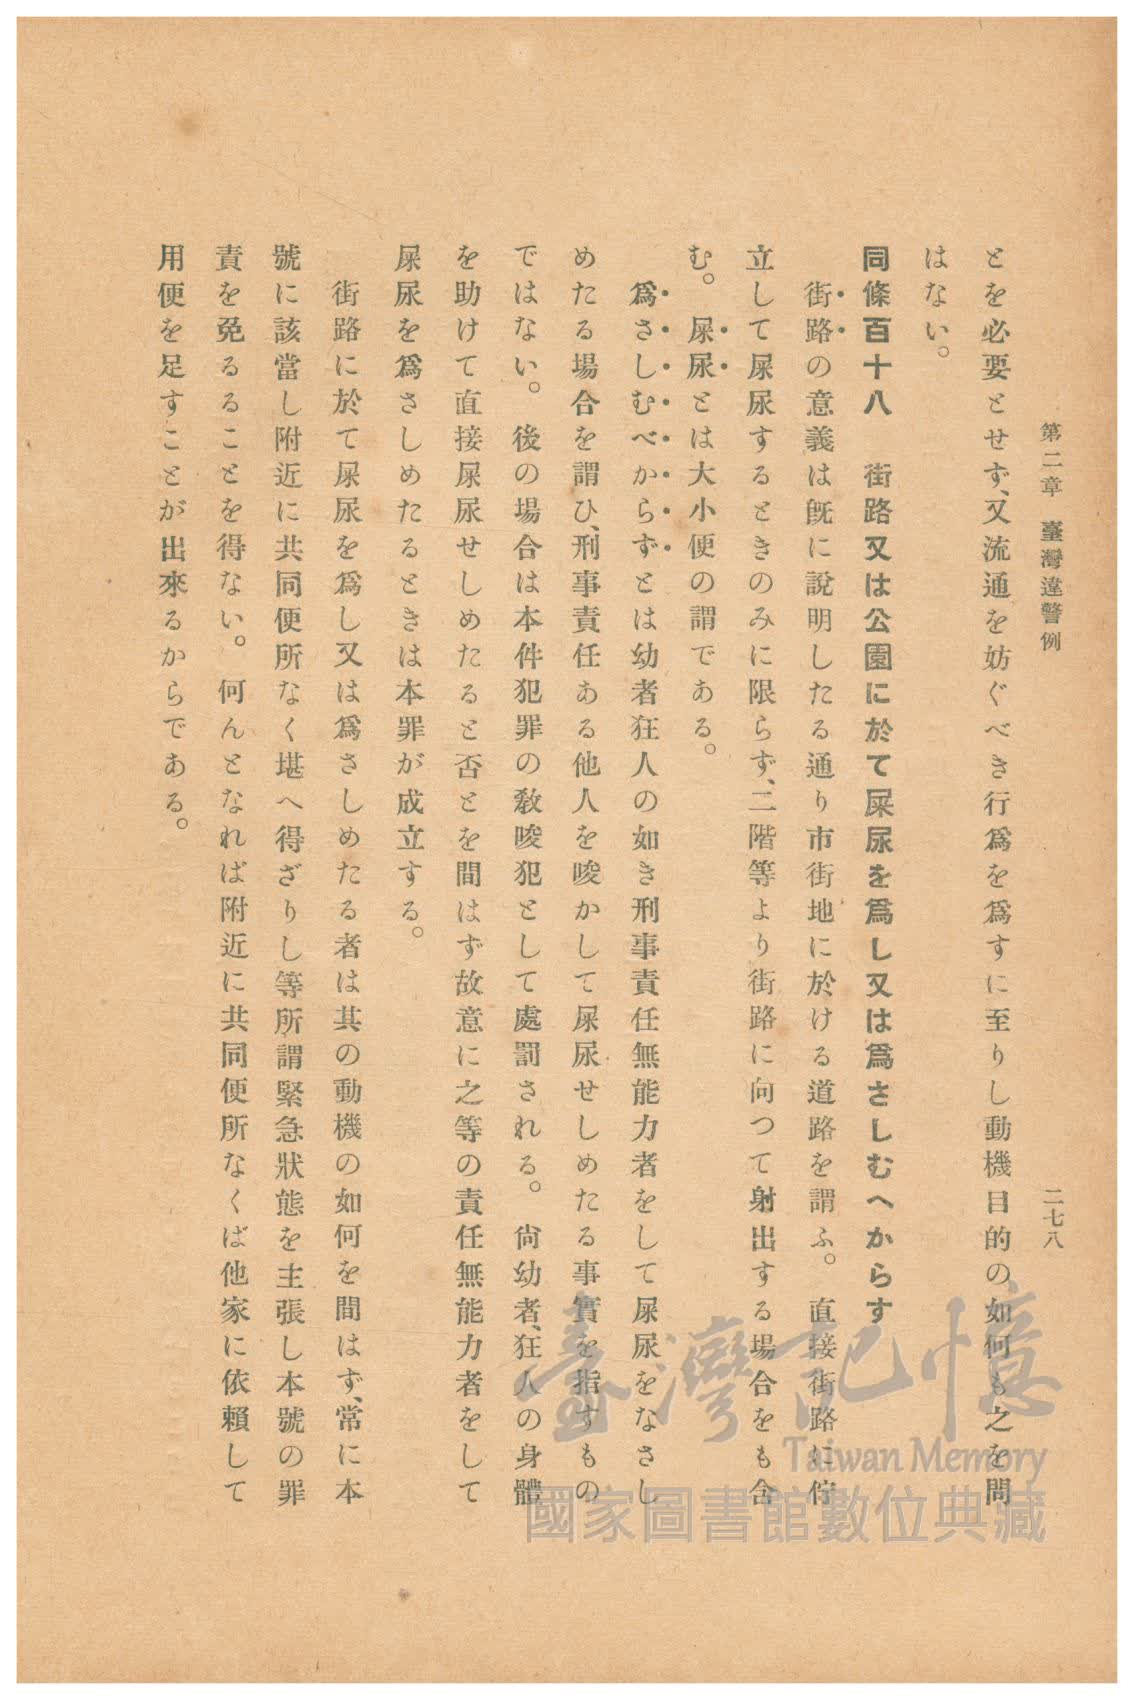 第二章　臺灣違警例
二七八
とを必要とせず、又流通を妨ぐべき行爲を爲すに至りし動機目的の如何も之を問
はない。
同條百十八　街路又は公園に於て屎尿を爲し又は爲さしむへからす
街路の意義は既に說明したる通り市街地に於ける道路を謂ふ。直接街路に佇
立して屎尿するときのみに限らず、二階等より街路に向つて射出する場合をも含
む。屎尿とは大小便の謂である。
爲さしむべからずとは幼者狂人の如き刑事責任無能力者をして屎尿をなさし
めたる場合を謂ひ、刑事責任ある他人を唆かして屎尿せしめたる事實を指すもの
ではない。後の場合は本件犯罪の敎唆犯として處罰される。尙幼者、狂人の身體
を助けて直接屎尿せしめたると否とを間はず故意に之等の責任無能力者をして
屎尿を爲さしめたるときは本罪が成立する。
街路に於て屎尿を爲し又は爲さしめたる者は其の動機の如何を間はず、常に本
號に該當し附近に共同便所なく堪へ得ざりし等所謂緊急狀態を主張し本號の罪
責を免るることを得ない。何んとなれば附近に共同便所なくば他家に依賴して
用便を足すことが出來るからである。
臺灣記憶
Taiwan Memory
國家圖書館數位典藏